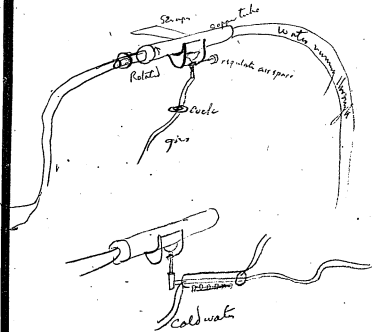 Scraper
copper tube
Water running through
Rotated
regulate air space
Cock
gas
Cold water